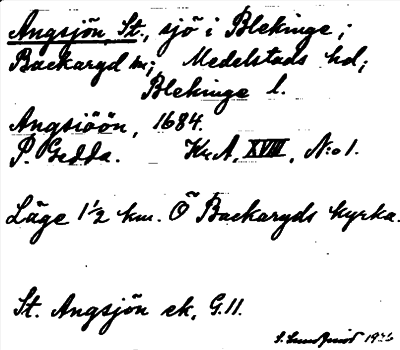 Angsjön, St., sjö i Blekinge;
Backaryd sn; Medelstads hd;
Blekinge l.
Angsiöön, 1684.
P. Gedda. Kr.A, XVIII, N:o 1.
Läge 1 1/2 km. Ö Backaryds kyrka.
St. Angsjön ek, G.11.